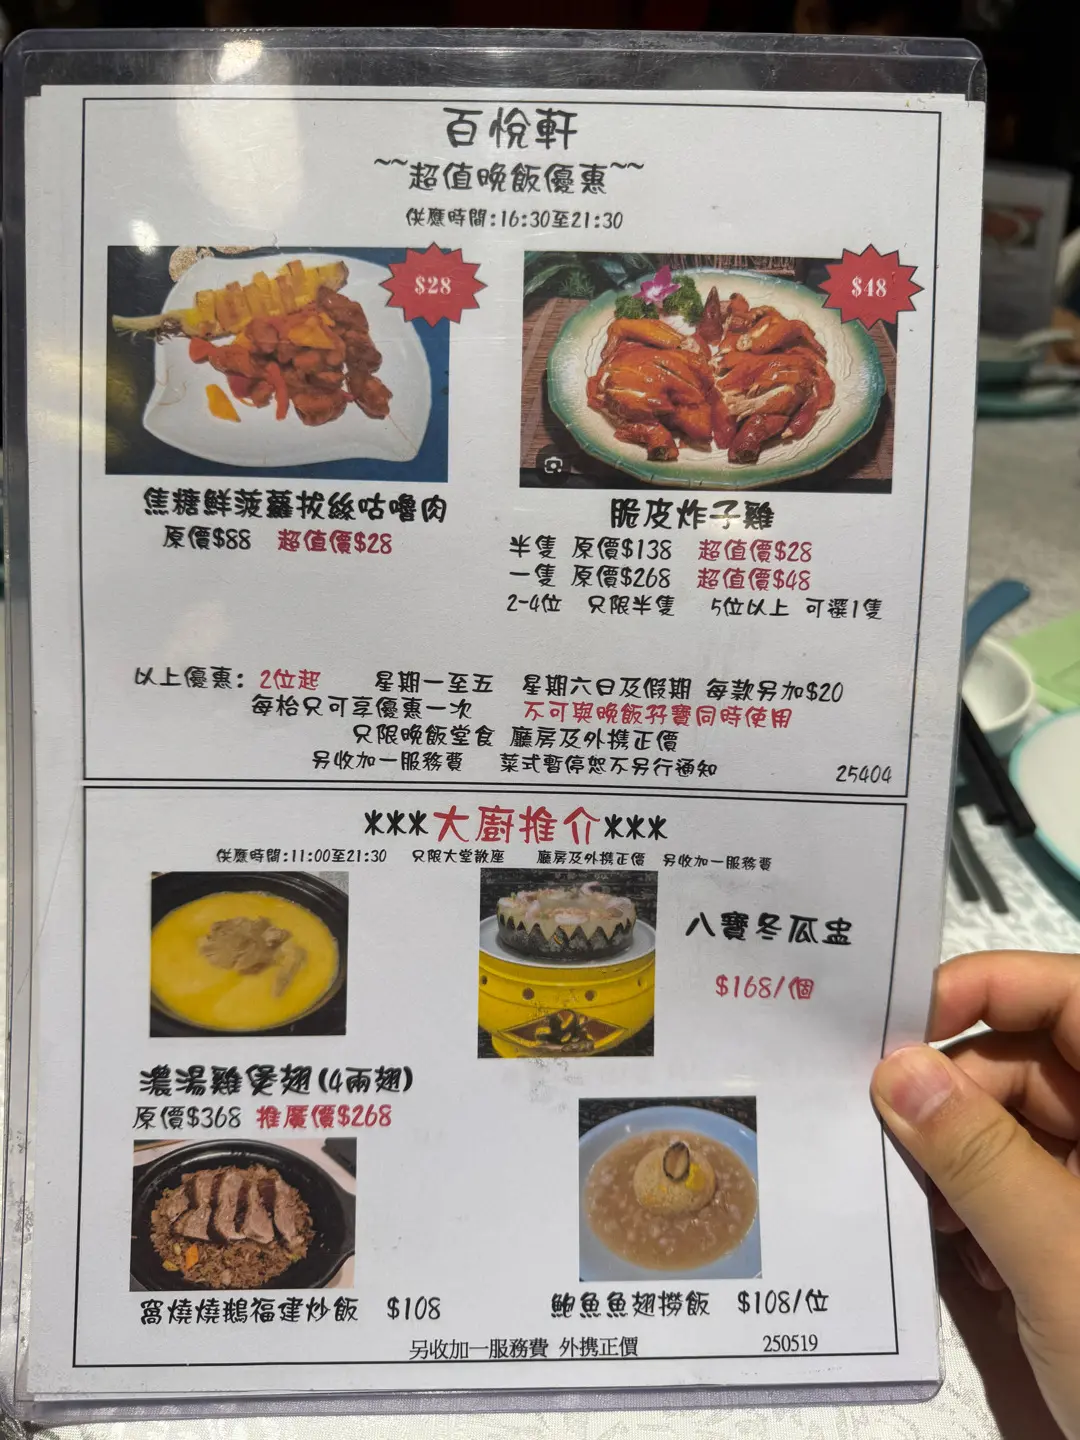 百悅軒
~~超值晚飯優惠~~
供應時間:16:30至21:30
$28
$48
焦糖鮮菠蘿拔絲咕嚕肉
原價$88 超值價$28
脆皮炸子雞
半隻 原價$138 超值價$28
一隻 原價$268 超值價$48
2-4位 只限半隻 5位以上 可選1隻
以上優惠: 2位起 星期一至五 星期六日及假期 每款另加$20
每枱只可享優惠一次 不可與晚飯孖寶同時使用
只限晚飯堂食 廳房及外携正價
另收加一服務費 菜式暫停恕不另行通知
25404
***大廚推介***
供應時間:11:00至21:30 只限大堂散座 廳房及外携正價 另收加一服務費
八寶冬瓜盅
$168/個
濃湯雞煲翅(4兩翅)
原價$368 推廣價$268
窩燒燒鵝福建炒飯 $108
鮑魚魚翅撈飯 $108/位
另收加一服務費 外携正價
250519